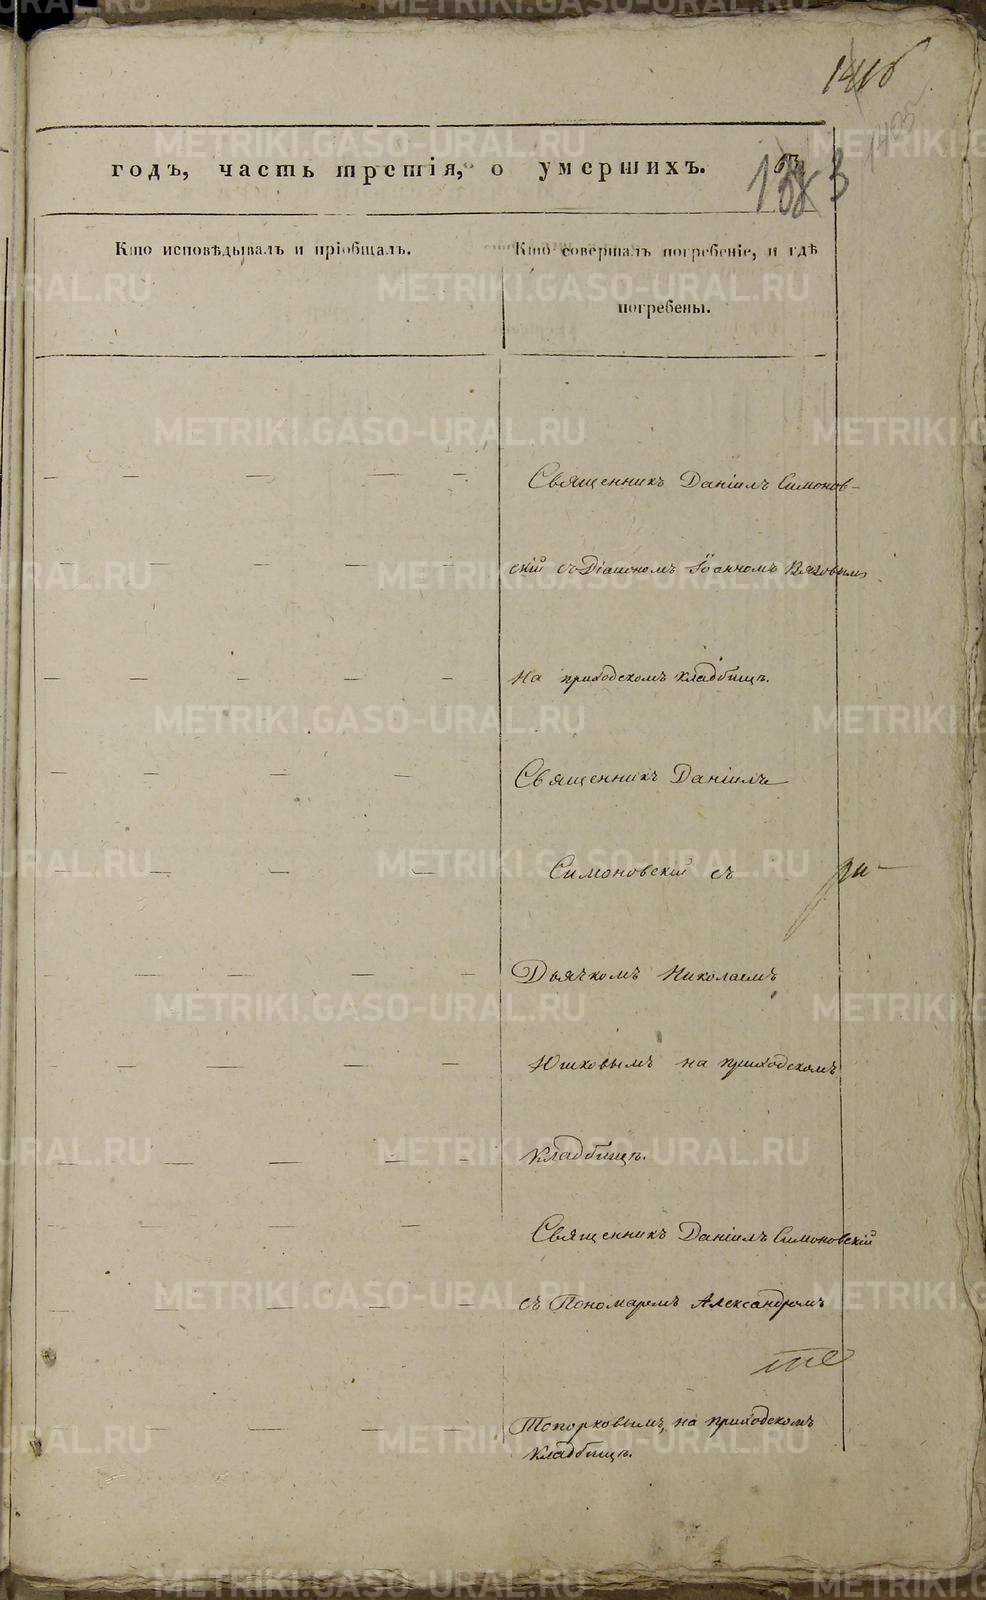 годъ, часть третія, о умершихъ.
Кто исповѣдывалъ и пріобщалъ.
Кто совершалъ погребеніе, и гдѣ
погребены.
Священникъ Даніилъ Симонов-
скій съ Діакономъ Іоанномъ
на приходскомъ кладбищѣ.
Священникъ Даніилъ
Симоновскій съ
Дьячкомъ Николаемъ
Юшковымъ на приходскомъ
кладбищѣ.
Священникъ Даніилъ Симоновскій
съ Пономаремъ Александромъ
Топорковымъ, на приходскомъ
кладбищѣ.
METRIKI.GASO-URAL.RU